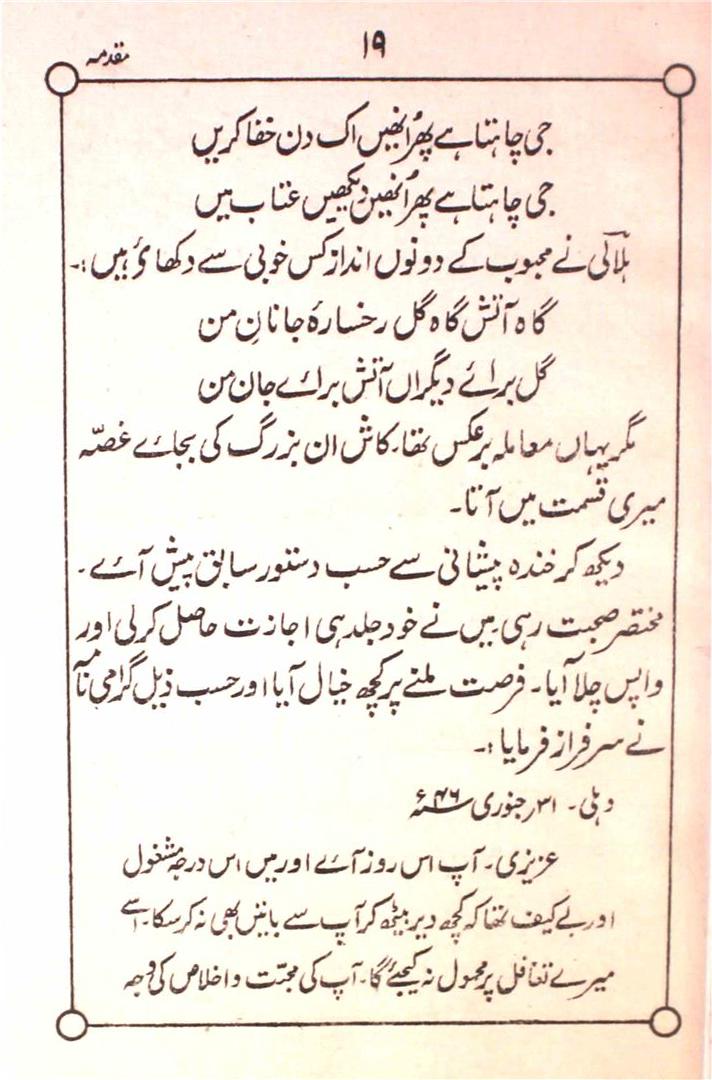 مقدمہ
۱۹
جی چاہتا ہے پھر اُنھیں اک دن خفا کریں
جی چاہتا ہے پھر اُنھیں دیکھیں عتاب میں
ہلالی نے محبوب کے دونوں انداز کس خوبی سے دکھائے ہیں :۔
گاہ آتش گاہ گل رخسارۂ جانانِ من
گل برائے دیگراں آتش برائے جان من
مگر یہاں معاملہ برعکس تھا۔ کاش ان بزرگ کی بجائے غصّہ
میری قسمت میں آتا۔
دیکھ کر خندہ پیشانی سے حسب دستور سابق پیش آئے۔
مختصر صحبت رہی۔ میں نے خود جلد ہی اجازت حاصل کر لی اور
واپس چلا آیا۔ فرصت ملنے پر کچھ خیال آیا اور حسب ذیل گرامی نامہ
نے سرفراز فرمایا :۔
دہلی۔ ۳۱؍ جنوری ۴۶ء
عزیزی۔ آپ اس روز آئے اور میں اس درجہ مشغول
اور بے کیف تھا کہ کچھ دیر بیٹھ کر آپ سے باتیں بھی نہ کر سکا۔ اسے
میرے تغافل پر محمول نہ کیجئے گا۔ آپ کی محبّت و اخلاص کی وجہ